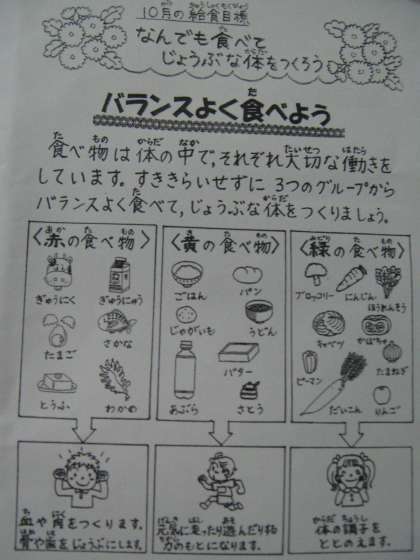 10月の給食目標
なんでも食べて
じょうぶな体をつくろう
バランスよく食べよう
食べ物は体の中で、それぞれ大切な働きを
しています。すききらいせずに3つのグループから
バランスよく食べて,じょうぶな体をつくりましょう。
〈赤の食べ物〉
ぎゅうにく
ぎゅうにゅう
たまご
さかな
とうふ
わかめ
血や肉をつくります。
骨や歯をじょうぶにします。
〈黄の食べ物〉
ごはん
パン
じゃがいも
うどん
あぶら
バター
さとう
元気に走ったり遊んだり
力のもとになります。
〈緑の食べ物〉
ブロッコリー
にんじん
ほうれんそう
キャベツ
かぼちゃ
ピーマン
たまねぎ
だいこん
りんご
体の調子を
ととのえます。